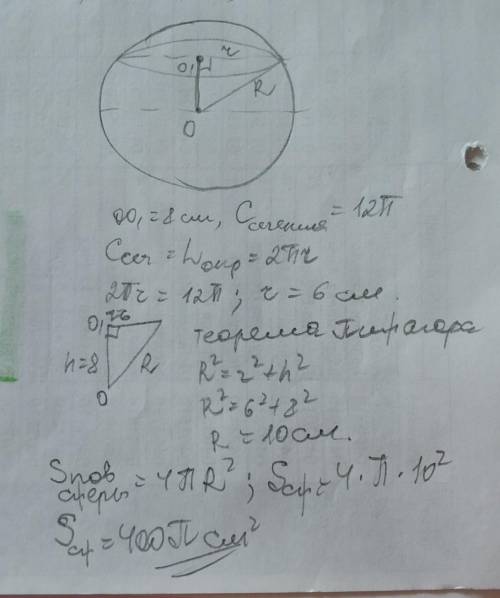 r
O₁
R
O
OO₁ = 8 см, Cсечения = 12π
Cсеч = Lокр = 2πr
2πr = 12π; r = 6 см.
O₁ r6 теорема Пифагора
h=8 R R² = r² + h²
O R² = 6² + 8²
R = 10 см.
Sпов сферы = 4πR²; Sсф = 4 · π · 10²
Sсф = 400π см²